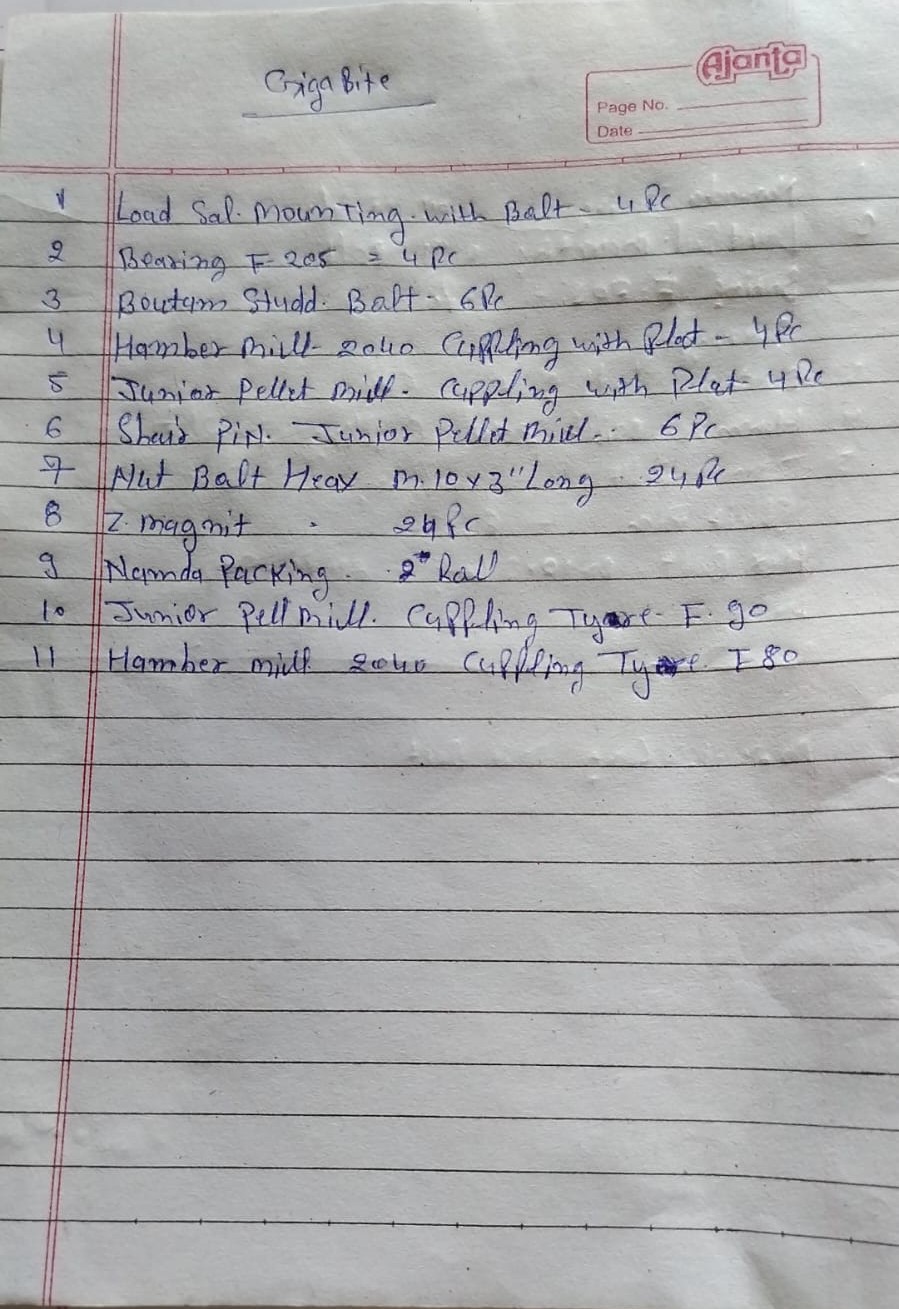 Giga Bite
Ajanta
Page No.
Date
1 Load Sal. mounTing. with Balt - 4 Pc
2 Bearing F 205 = 4 Pc
3 Boutam Studd. Balt - 6 Pc
4 Hamber mill - 2040 Cuppling with Plat - 4 Pc
5 Junior Pellet mill. Cuppling with Plat 4 Pc
6 PiN. Junior Pellet mill - 6 Pc
7 Nut Balt Heax m. 10 x 3" Long - 24 Pc
8 Z. magnit - 24 Pc
9 Namda Packing. 2" Rall
10 Junior Pell mill. Cuppling Tyare - F. 90
11 Hamber mill 2040 Cuppling Tyare. F 80